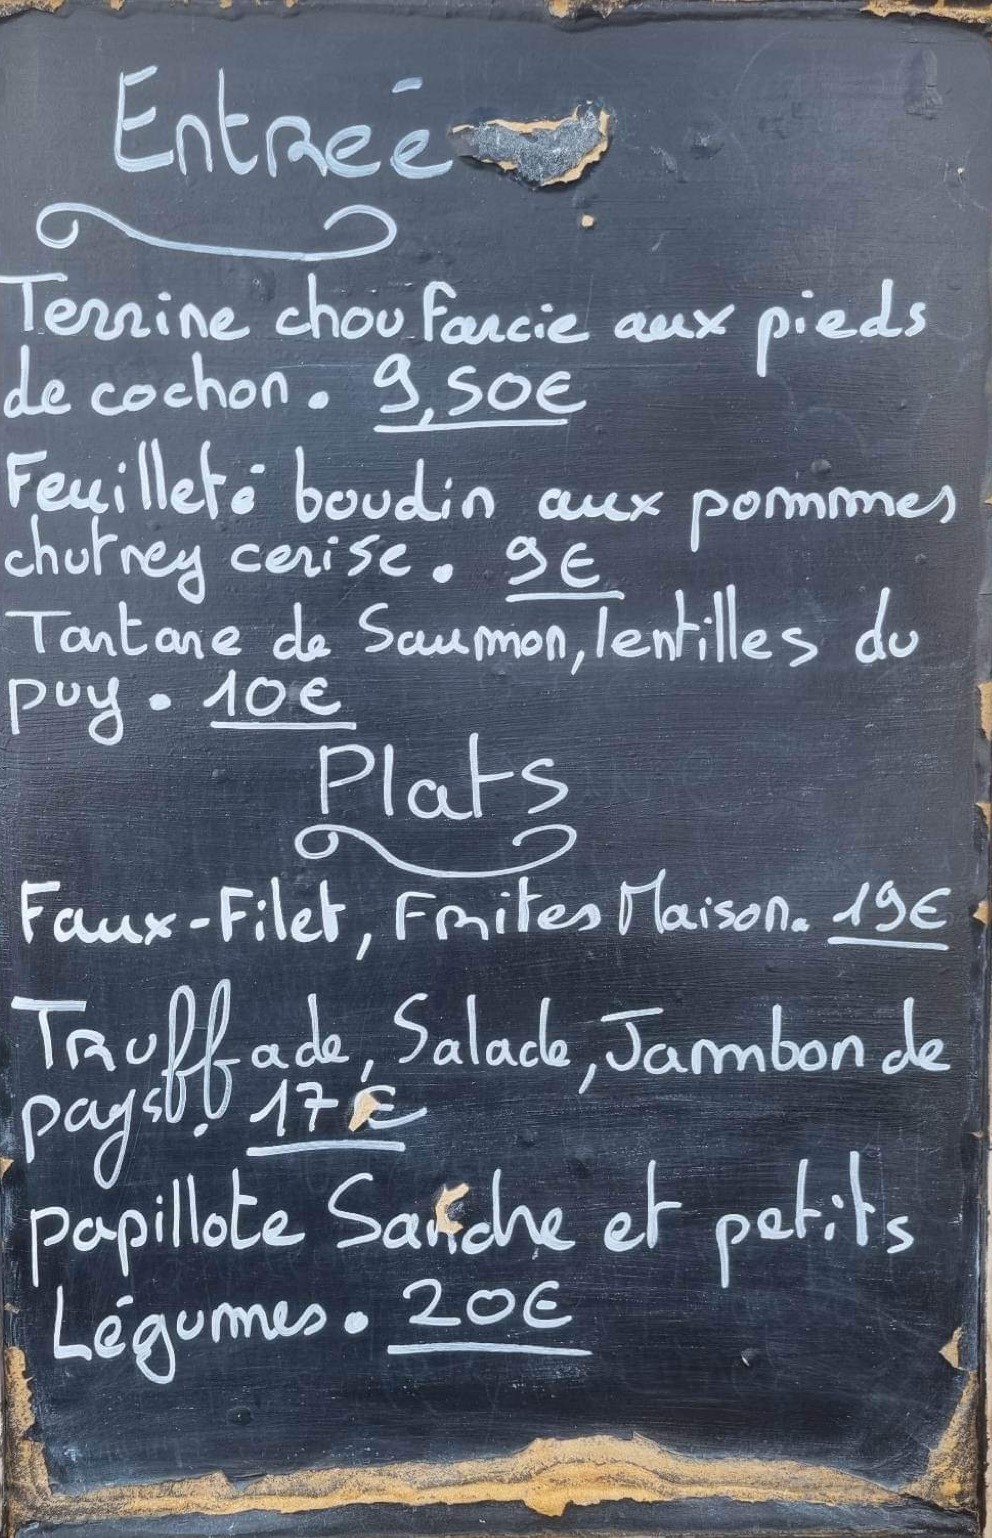 Entreé
Terrine chou farcie aux pieds
de cochon. 9,50€
Feuilleté boudin aux pommes
chutney cerise. 9€
Tartare de Saumon, lentilles du
puy. 10€
Plats
Faux-Filet, Frites Maison. 19€
Truffade, Salade, Jambon de
pays. 17€
papillote Sandre et petits
Légumes. 20€